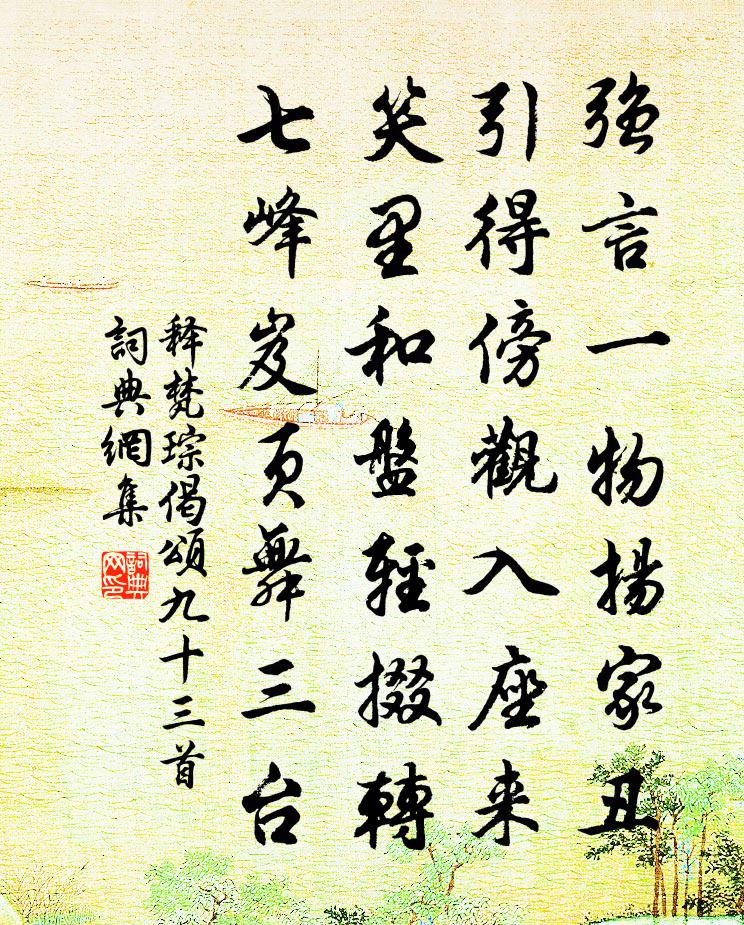 强言一物揚家丑
引得傍觀入座来
笑里和盤輕掇轉
七峰岌頁舞三台
释梵琮偈頌九十三首
詞典網集
詞典網印